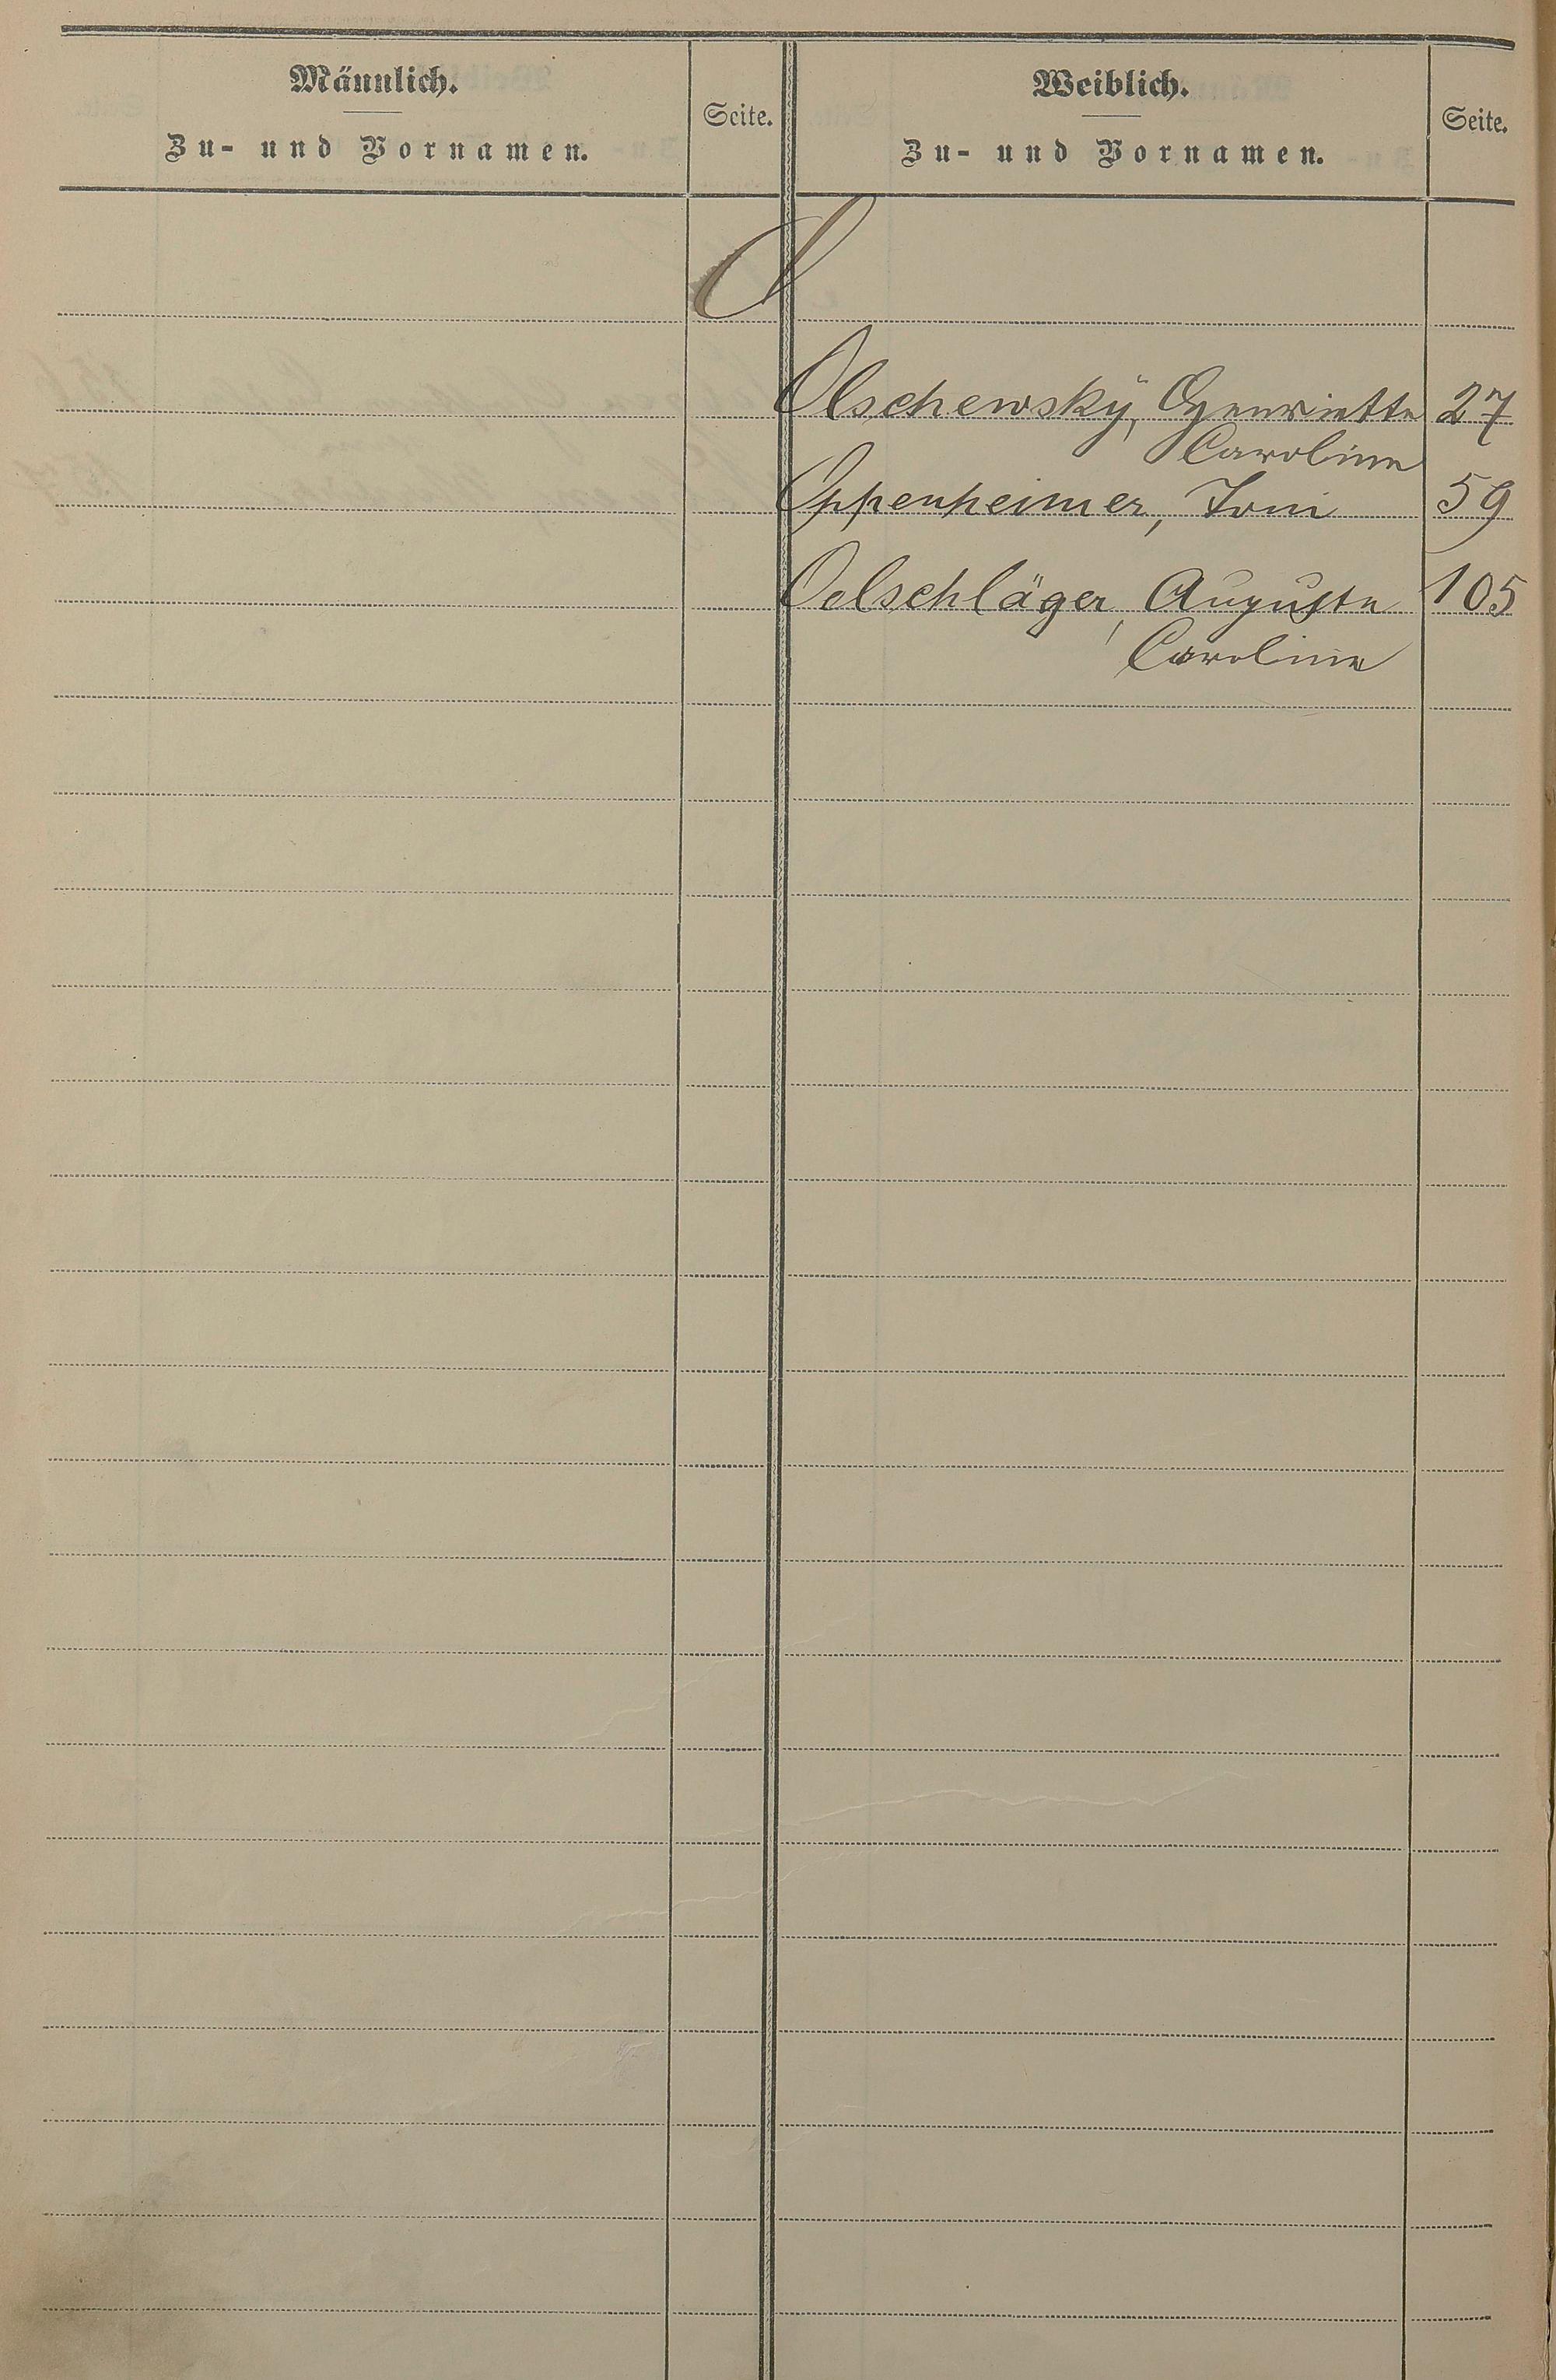 Männlich.
Zu- und Vornamen.
Seite.
Weiblich.
Zu- und Vornamen.
Seite.
O
Olschewskÿ, Henriette 27
Caroline
Oppenheimer, Toni 59
Oelschläger, Auguste 105
Caroline